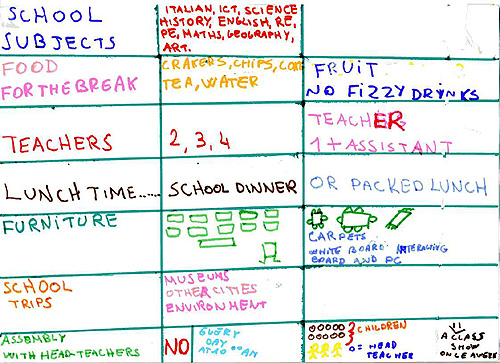 SCHOOL
SUBJECTS
ITALIAN, ICT, SCIENCE
HISTORY, ENGLISH, RE,
PE, MATHS, GEOGRAPHY,
ART.
FOOD
FOR THE BREAK
CRAKERS, CHIPS,
TEA, WATER
FRUIT
NO FIZZY DRYNKS
TEACHERS
2, 3, 4
TEACHER
1 + ASSISTANT
LUNCH TIME......
SCHOOL DINNER
OR PACKED LUNCH
FURNITURE
CARPETS
WHITE BOARD INTERACTING
BOARD AND PC
SCHOOL
TRIPS
MUSEUMS
OTHER CITIES
ENVIRONMENT
ASSEMBLY
WITH HEAD-TEACHERS
NO
EVERY
DAY
AT 10 00 AM
CHILDREN
= HEAD
TEACHER
A CLASS
SHOW
ONCE A WEEK